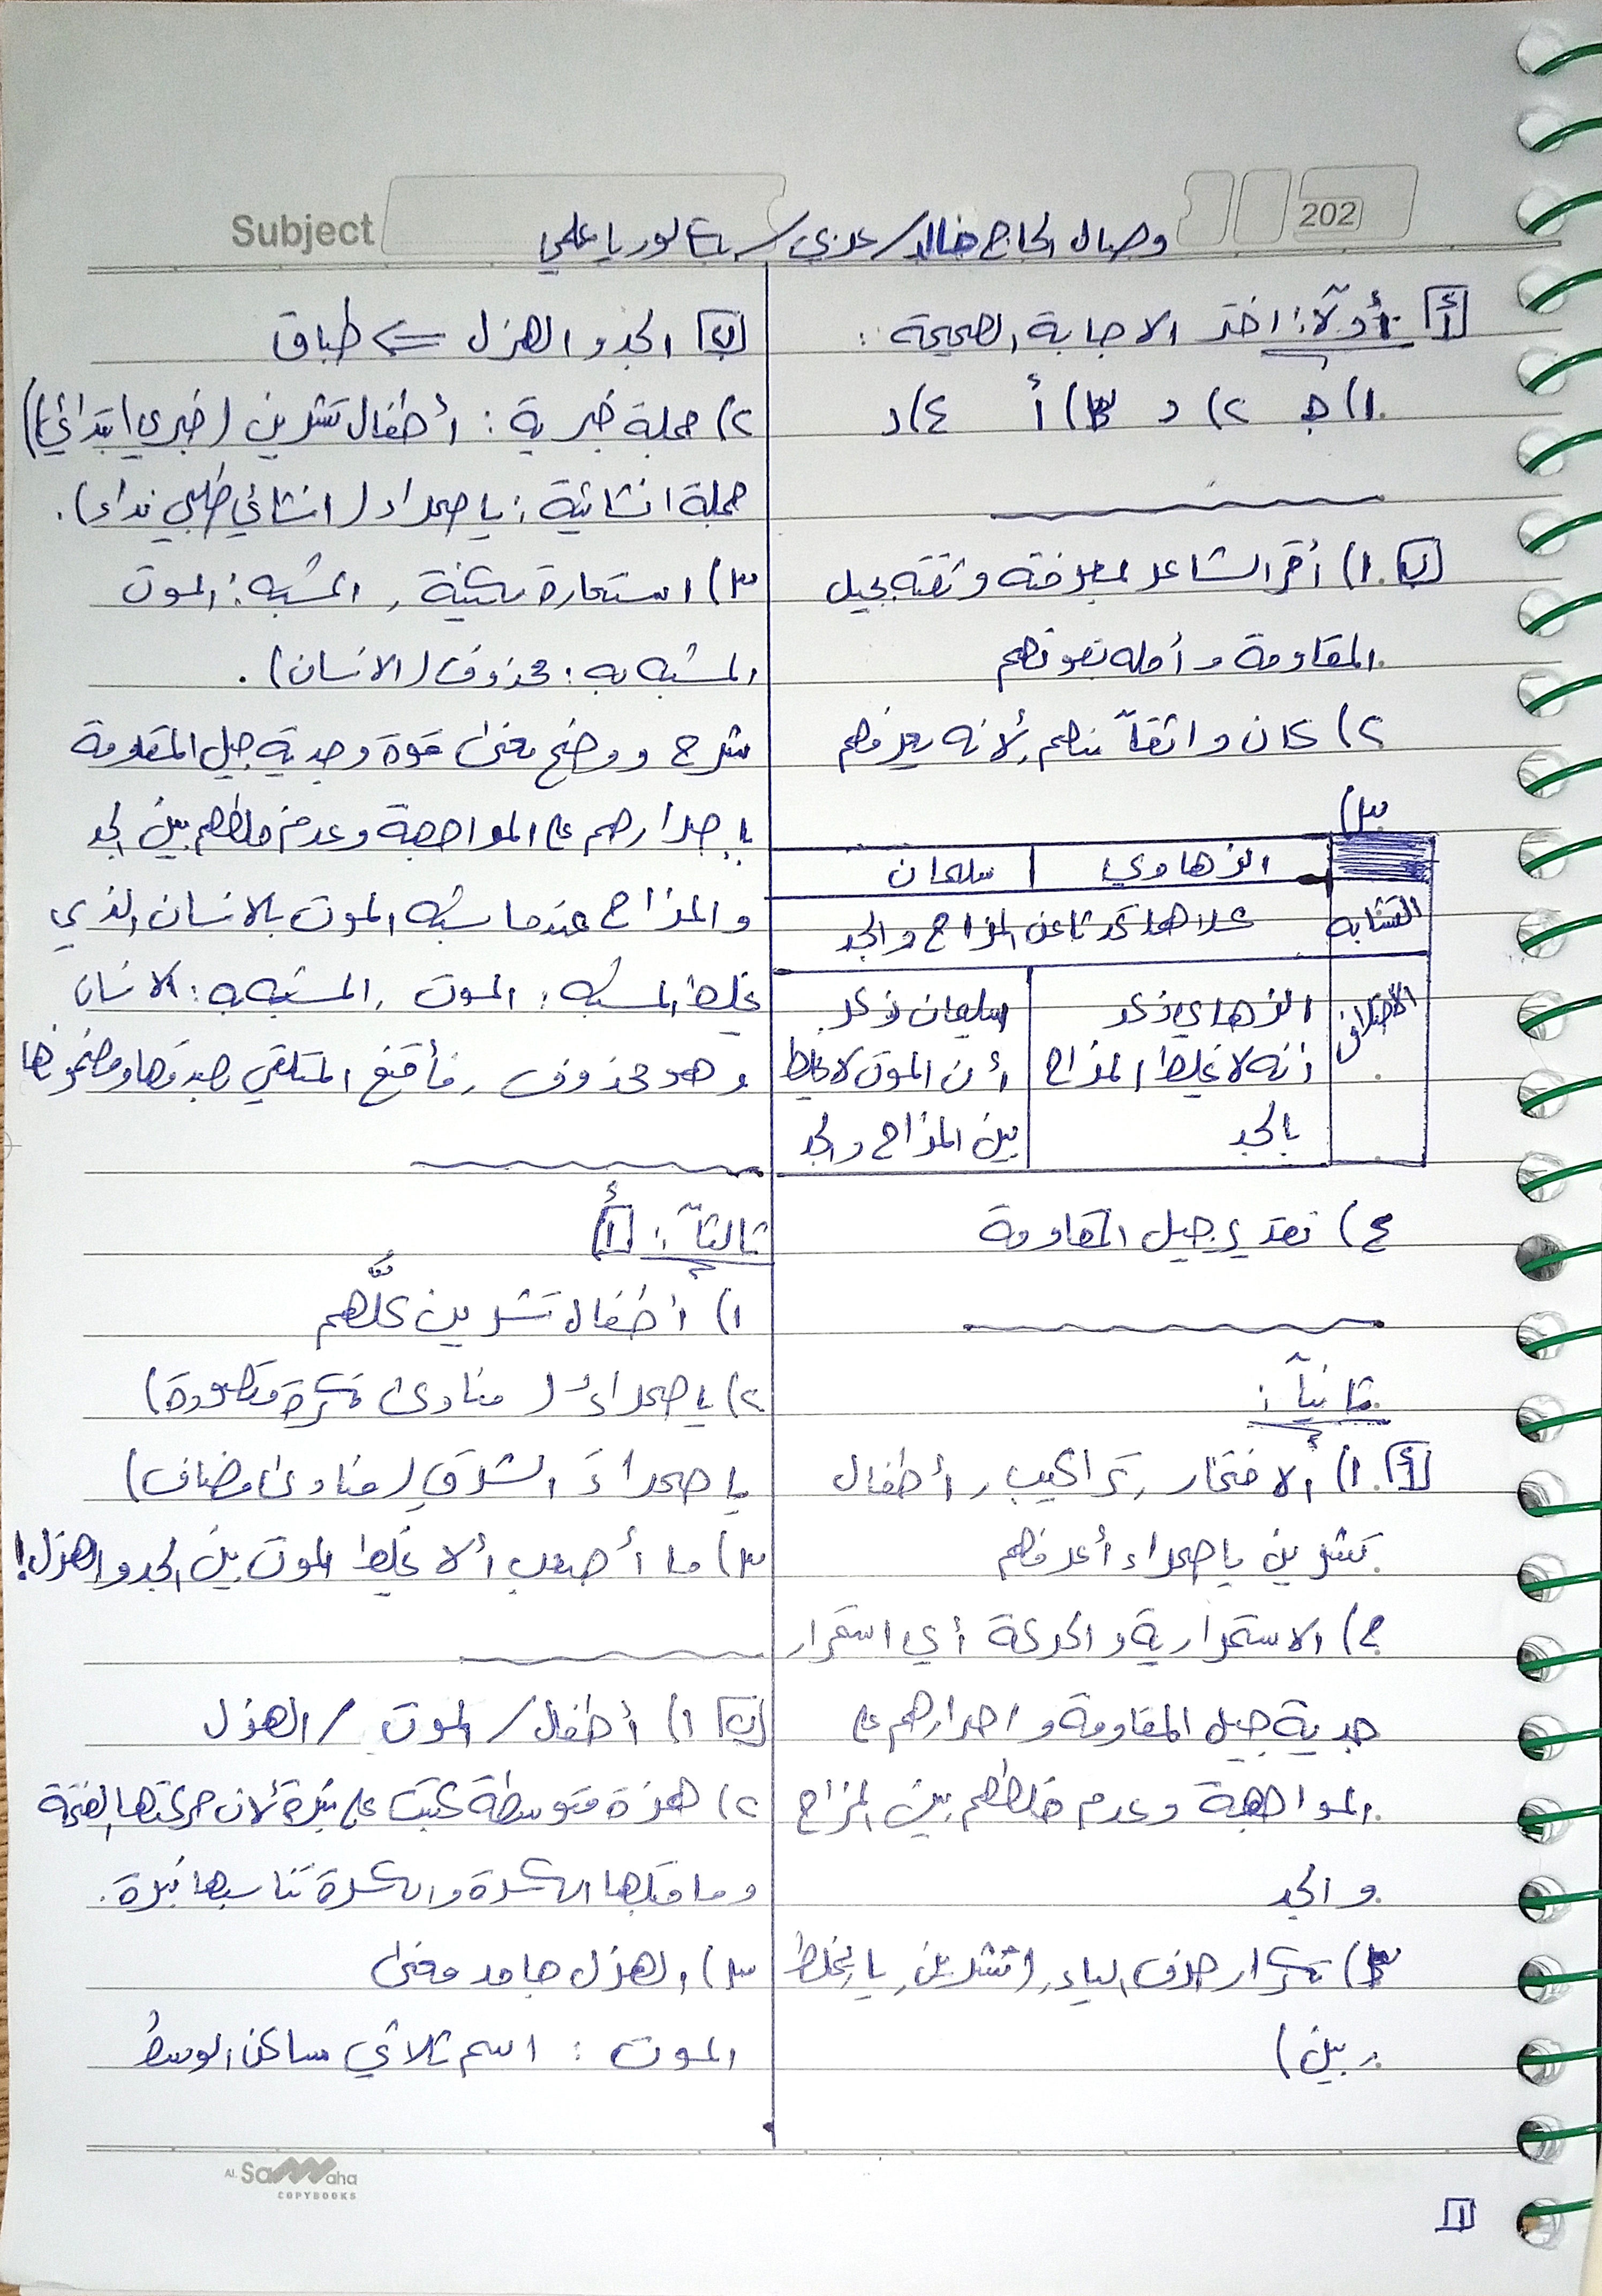 Subject
202
وصال الحاج خالد / عربي / بكالوريا علمي
أ أولاً: اختر الإجابة الصحيحة :
١) ج ٢) د ٣) أ ٤) د
ب ١) أقر الشاعر لمعرفته وثقته بجيل
المقاومة وأمله بعونهم
٢) كان واثقاً منهم لأنه يعرفهم
٣)
الزهاوي سليمان
التشابه كلاهما تحدثا عن المزاح والجد
الاختلاف الزهاوي ذكر أنه لا يخلط المزاح بالجد
سليمان ذكر أن الموت لا يخلط بين المزاح والجد
٤) تقدير جيل المقاومة
ثانياً :
أ ١) الافتخار , تراكيب , أطفال
تشرين يا صحراء أعرفهم
٢) الاستمرارية والحركة أي استمرار
جدية جيل المقاومة واصرارهم على
المواجهة وعدم خلطهم بين المزاح
والجد
٣) تكرار حرف الياء , (تشرين , يا , يخلط
, بين)
ب الجد والهزل ⇐ طباق
٢) جملة خبرية : أطفال تشرين (خبري ابتدائي)
جملة انشائية : يا صحراء (انشائي طلبي نداء) .
٣) استعارة مكنية , المشبه : الموت
المشبه به : محذوف (الانسان) .
شرح ووضح معنى قوة وجدية جيل المقاومة
بإصرارهم على المواجهة وعدم خلطهم بين الجد
والمزاح عندما شبه الموت بالانسان الذي
يخلط المشبه : الموت , المشبه به : الانسان
وهو محذوف , فأقنع المتلقي بصدقها ومضمونها
ثالثاً : أ
١) أطفال تشرين كلُّهم
٢) يا صحراءُ (منادى نكرة مقصودة)
يا صحراءَ الشرقِ (منادى مضاف)
٣) ما أصعب ألا يخلط الموت بين الجد والهزل!
ب ١) أطفال / الموت / الهزل
٢) همزة متوسطة كتبت على نبرة لأن حركتها الفتحة
وما قبلها الكسرة والكسرة تناسبها نبرة .
٣) الهزل جامد معنى
الموت : اسم ثلاثي ساكن الوسط
AL Samaha
COPYBOOKS
١